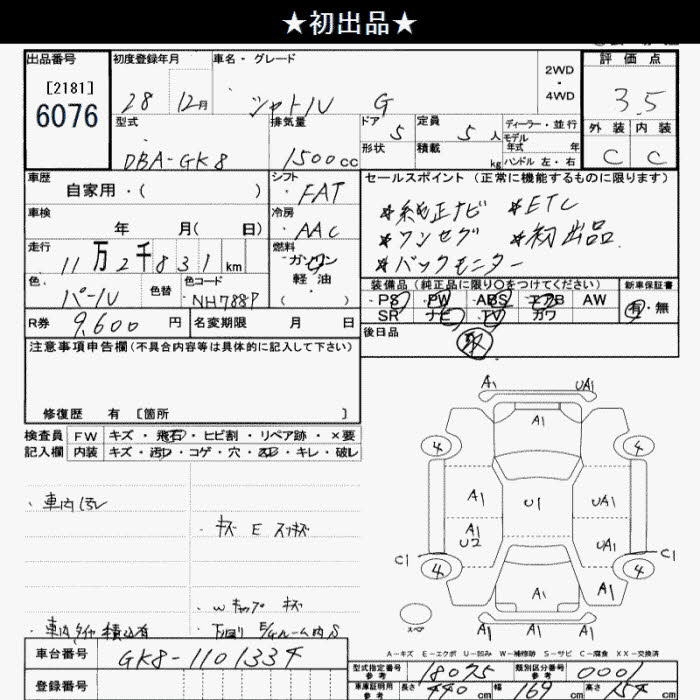 ★初出品★
出品番号 初度登録年月 車名・グレード 2WD・4WD 評価点
[2181]
6076
28 12月 シャトル G 3.5
型式 排気量 ドア 5 定員 5 人 ディーラー・並行 外装 内装
モデル年式 年
形状 積載 kg ハンドル 左・右
DBA-GK8 1500cc C C
車歴 シフト セールスポイント (正常に機能するものに限ります)
自家用・( ) FAT ＊純正ナビ ＊ETC
車検 冷房 ＊ワンセグ ＊初出品
年 月( 日) AAC ＊バックモニター
走行 燃料
11万2千831km ガソリン 軽油 ( )
色 色替 色コード 装備品 (純正品に限り○をつけてください) 新車保証書
パール NH788P PS PW ABS エアB AW 有・無
R券 9,600円 名変期限 月 日 SR ナビ TV カワ
注意事項申告欄(不具合内容等は具体的に記入して下さい) 後日品
修復歴 有 [箇所 ]
検査員 FW キズ・飛石・ヒビ割・リペア跡・×要
記入欄 内装 キズ・汚れ・コゲ・穴・・キレ・破レ
A1 UA1
A1
4 4
A1 U1 UA1
A1 U2 UA1
C1 C1
4 4
A1 A1
スペア
A1 A1 A1
・車内汚れ
・キズ E スリキズ
・Wキャップ キズ
・車内タイヤ積込有 ・下廻り ルーム内 S
A－キズ E－エクボ U－凹み W－補修跡 S－サビ C－腐食 XX－交換済
車台番号 GK8-1101334
型式指定番号 参考 18075 類別区分番号 参考 0001
登録番号 車庫証明用 参考 長さ 440cm 幅 169cm 高さ 154cm